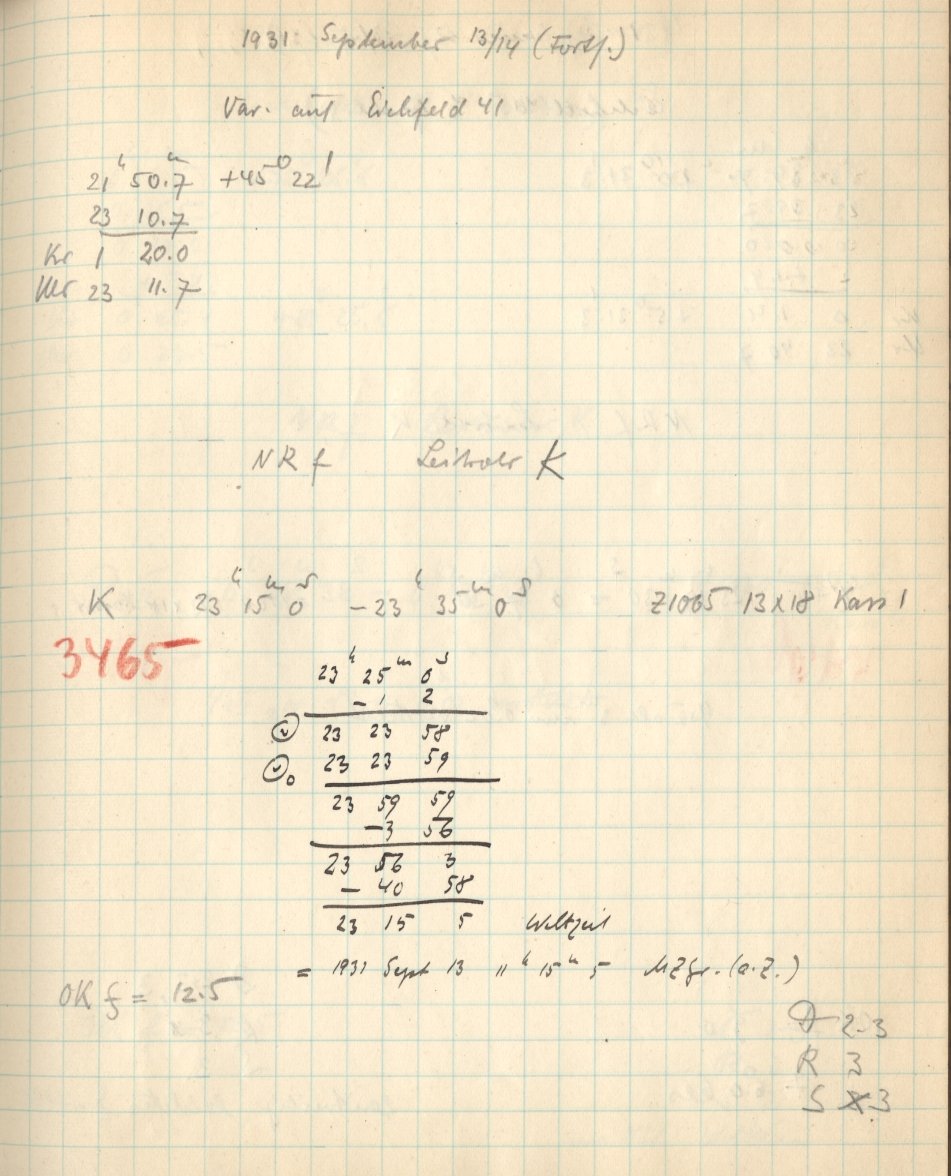 1931 September 13/14 (Forts.)
Var. auf Eichfeld 41
21ʰ 50.7ᵐ +45° 22'
23 10.7
Kr 1 20.0
Uhr 23 11.7
NR f Leitrohr K
K 23ʰ 15ᵐ 0ˢ - 23ʰ 35ᵐ 0ˢ Z1065 13x18 Kass 1
3465
23ʰ 25ᵐ 0ˢ
- 1 2
23 23 58
23 23 59
23 59 59
-3 56
23 56 3
- 40 58
23 15 5 Weltzeit
= 1931 Sept 13 11ʰ 15ᵐ 5 MZgr. (a.Z.)
OK f = 12.5
D 2-3
R 3
S 3